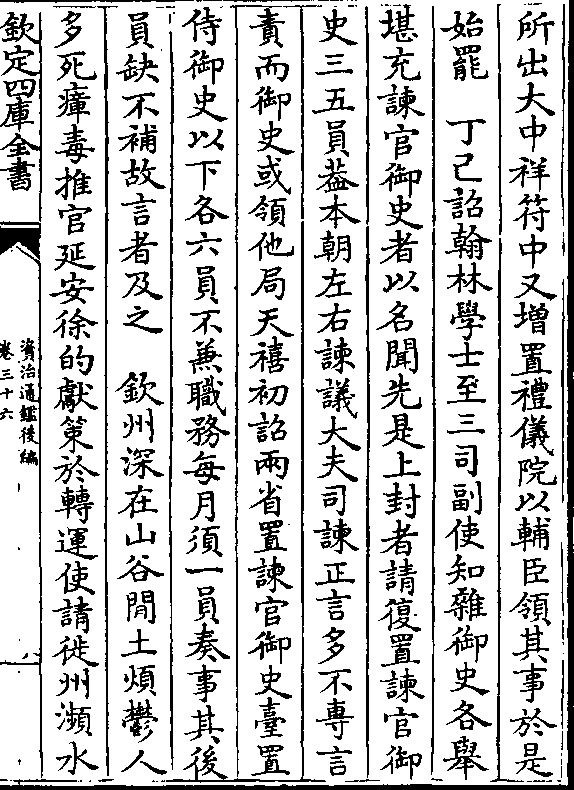 所出大中祥符中又增置禮儀院以輔臣領其事於是
始罷　丁己詔翰林學士至三司副使知雜御史各舉
堪充諫官御史者以名聞先是上封者請復置諫官御
史三五員葢本朝左右諫議大夫司諫正言多不專言
責而御史或領他局天禧初詔兩省置諫官御史臺置
侍御史以下各六員不兼職務每月須一員奏事其後
員缺不補故言者及之　欽州深在山谷閒土煩鬱人
多死瘴毒推官延安徐的獻策於轉運使請徙州瀕水
欽定四庫全書
資治通鑑後編
卷三十六
八